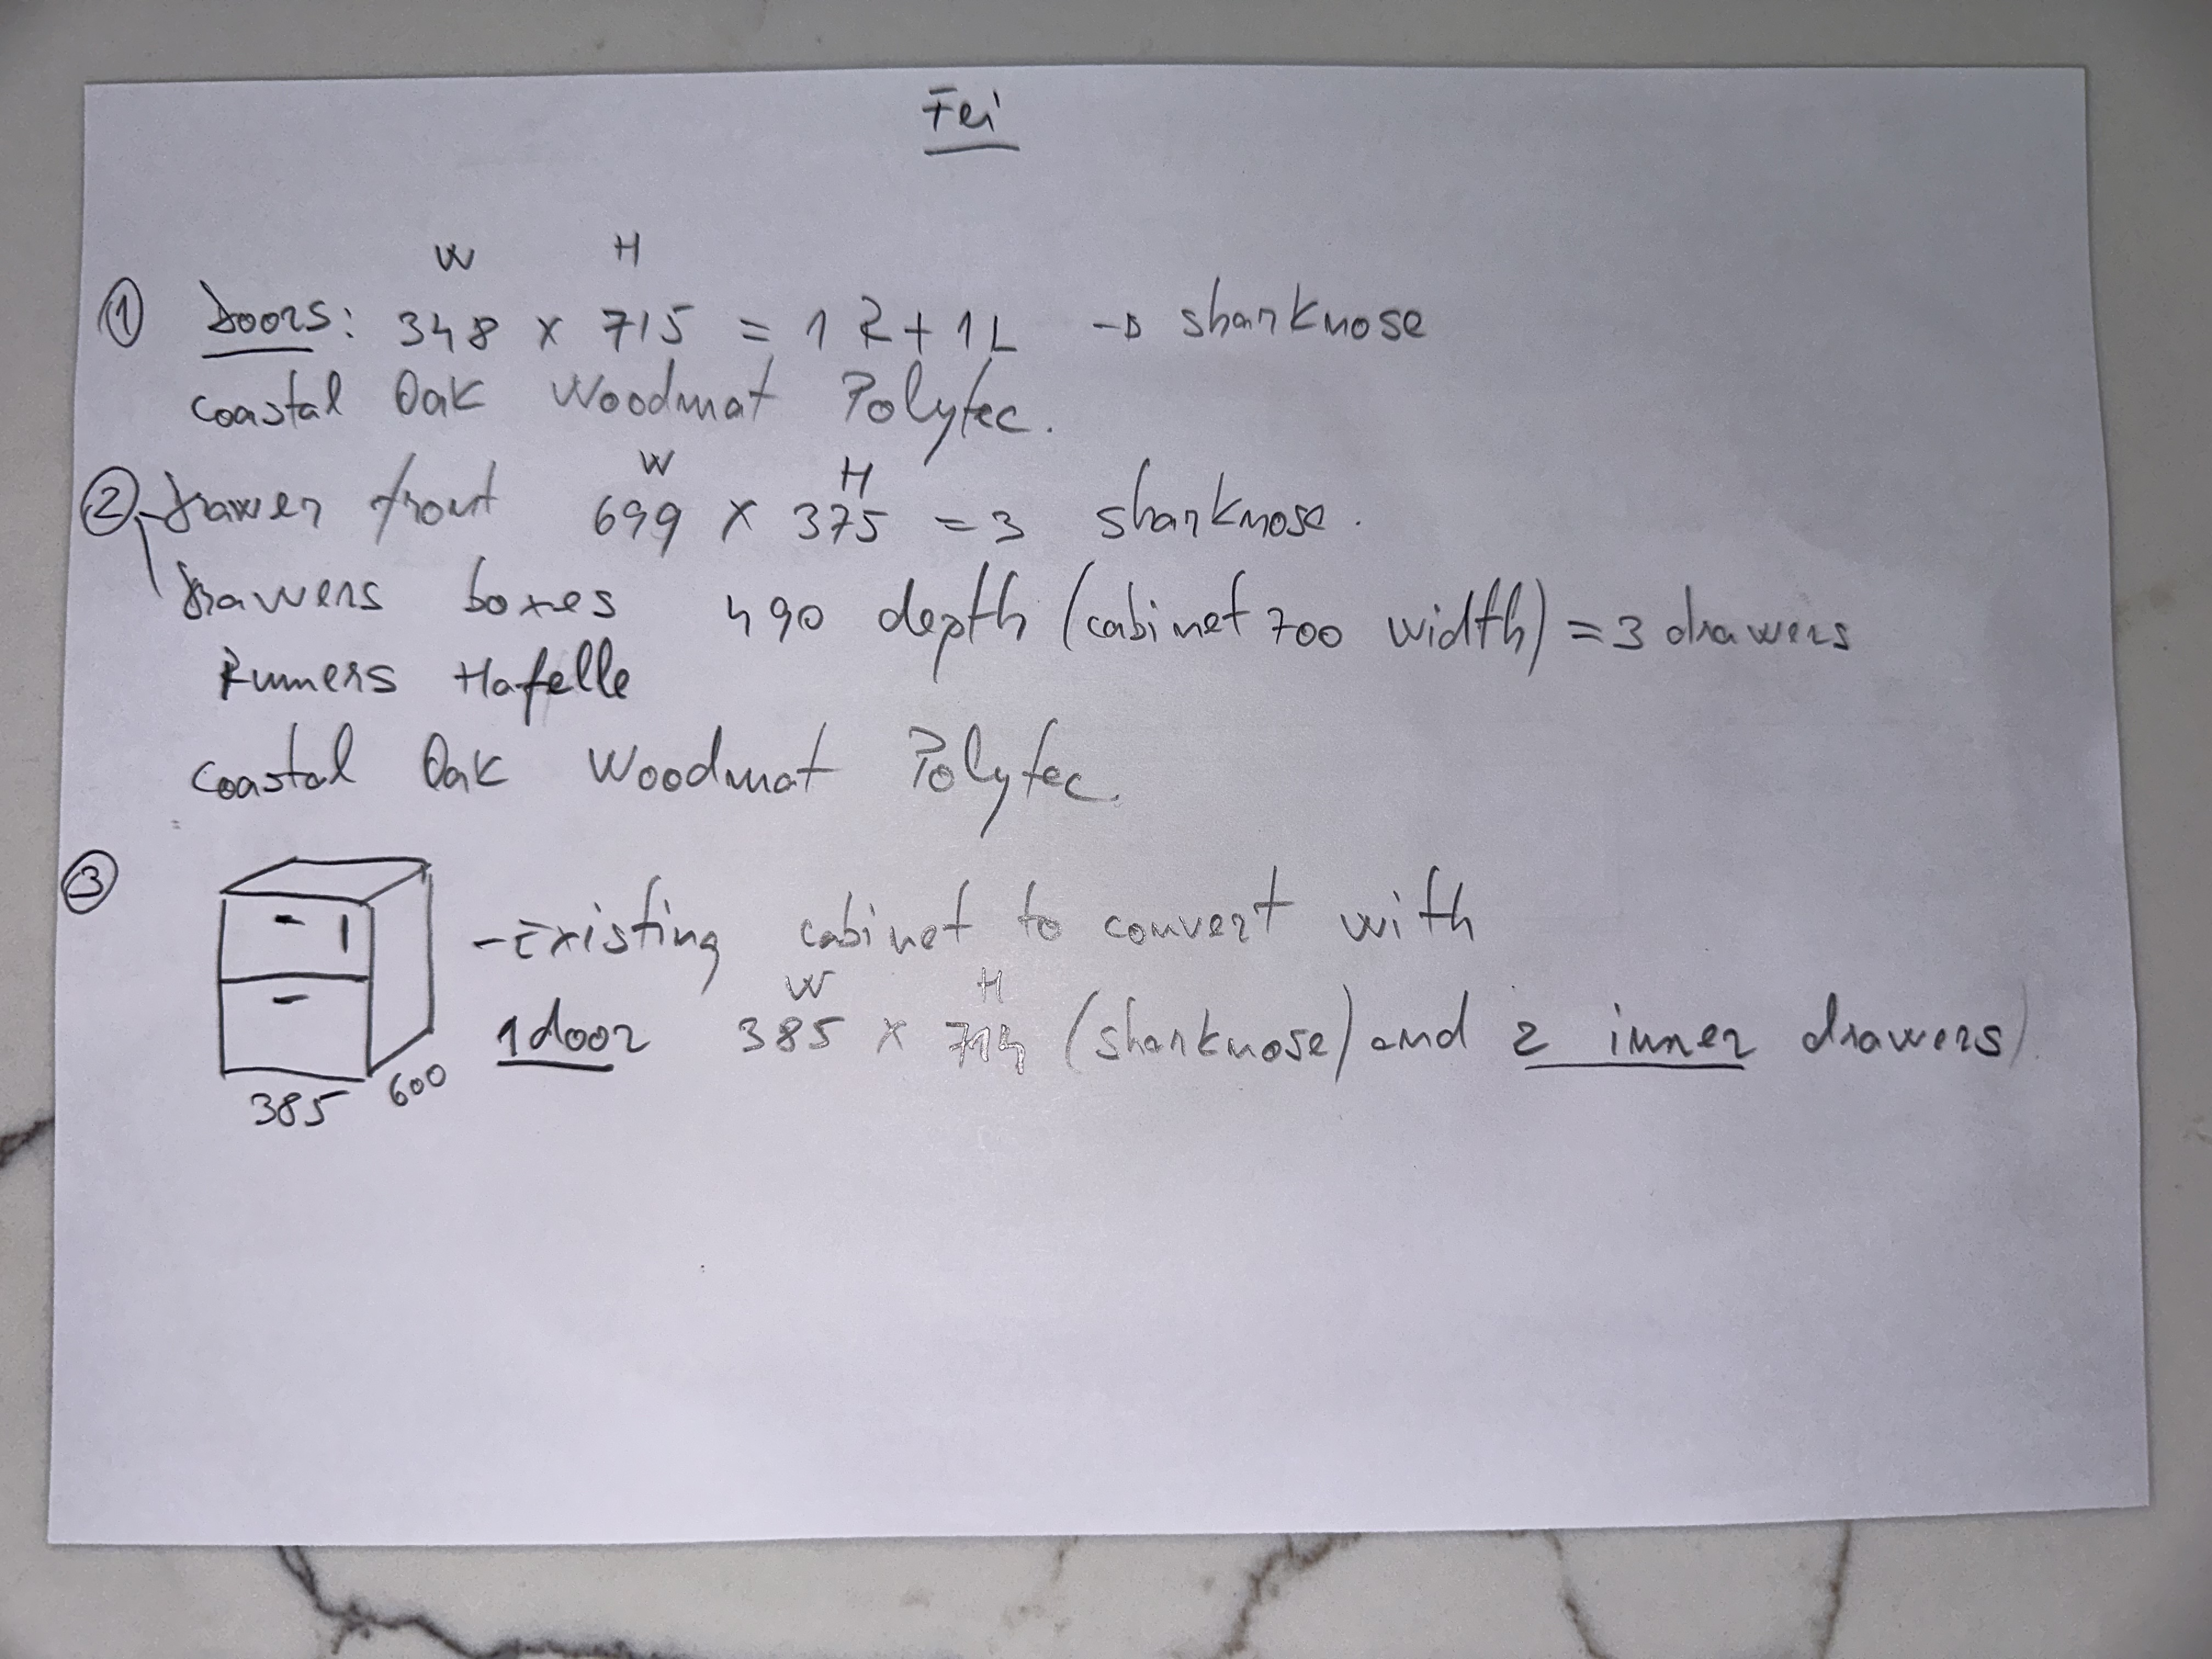 Fei
W H
① Doors: 348 x 715 = 1 R + 1 L → sharknose
Coastal Oak Woodmat Polytec.
W H
② - Drawer front 699 x 375 = 3 sharknose.
Drawers boxes 490 depth (cabinet 700 width) = 3 drawers
Runners Hafelle
Coastal Oak Woodmat Polytec.
③ - Existing cabinet to convert with
W H
1 door 385 x 714 (sharknose) and 2 inner drawers)
385 600